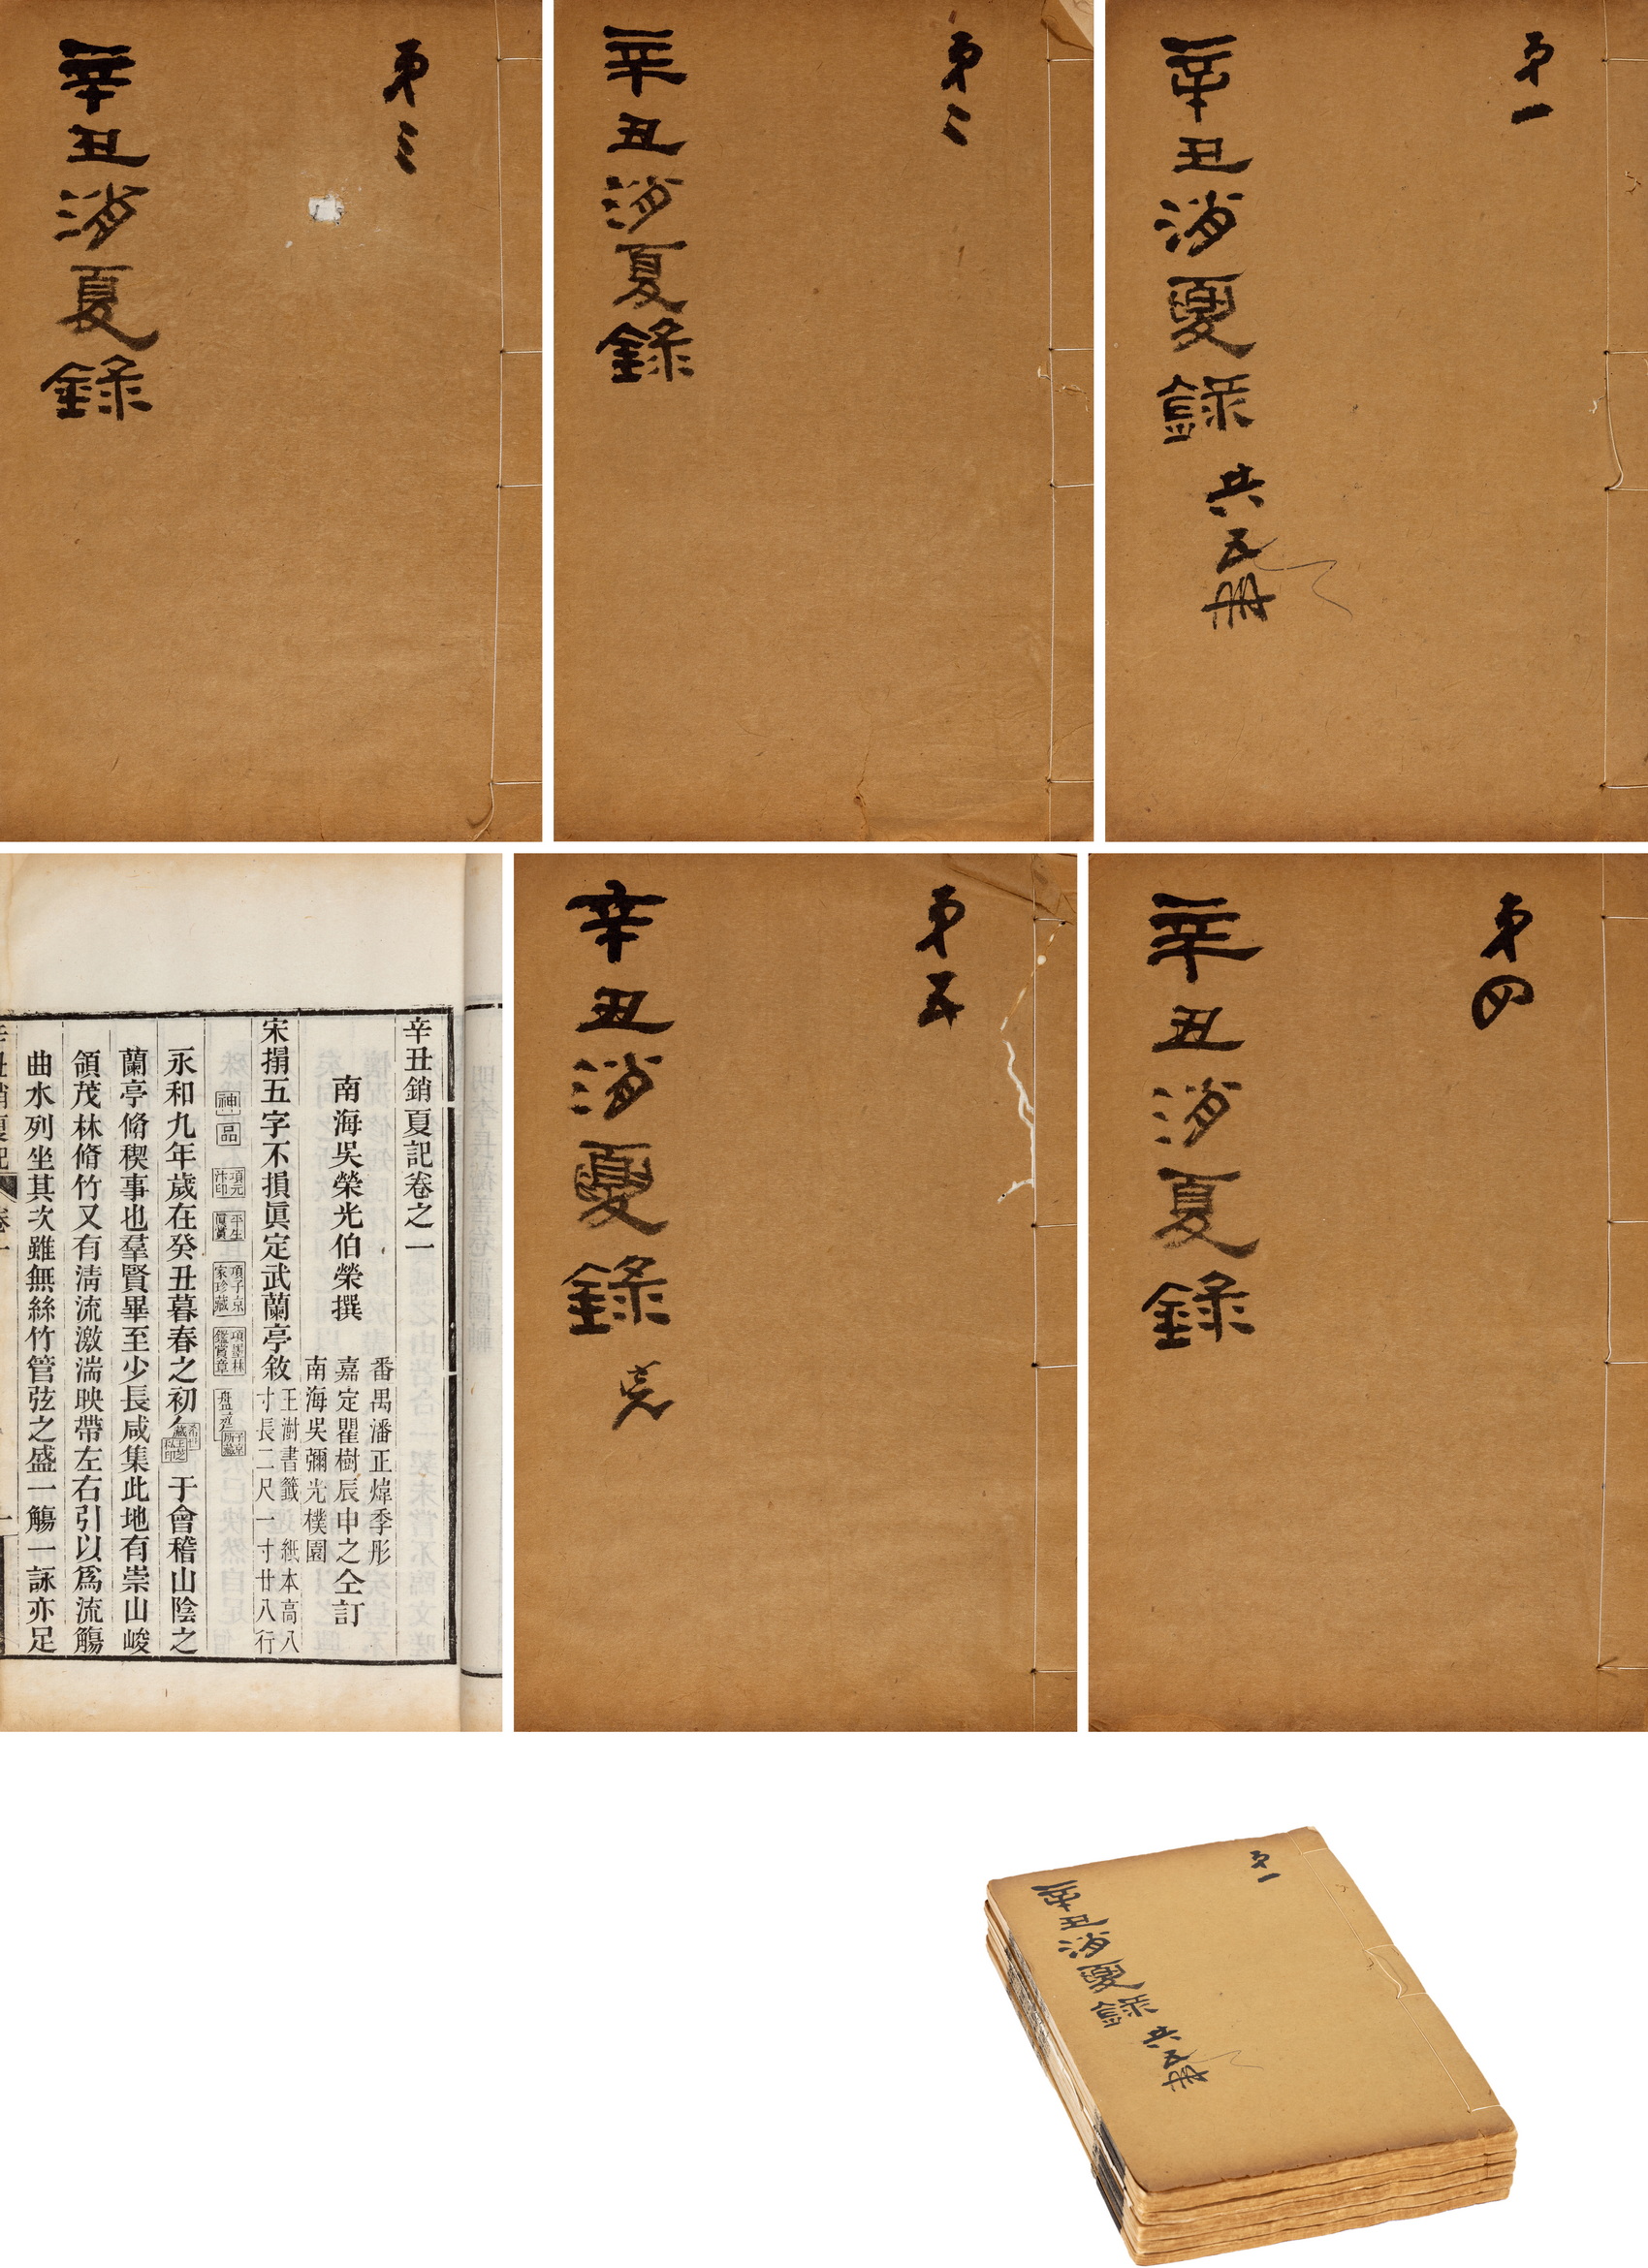 第一
辛丑消夏錄 共五冊
第二
辛丑消夏錄
第三
辛丑消夏錄
第四
辛丑消夏錄
第五
辛丑消夏錄 完
辛丑銷夏記卷之一
南海吳榮光伯榮撰
番禺潘正煒季彤
嘉定瞿樹辰申之仝訂
南海吳彌光樸園
宋搨五字不損眞定武蘭亭敘
王澍書籤 紙本高八
寸長二尺一寸廿八行
神品
項元汴印
平生眞賞
項子京家珍藏
項墨林鑑賞章
子京所藏
永和九年歲在癸丑暮春之初
于會稽山陰之
蘭亭脩稧事也羣賢畢至少長咸集此地有崇山峻
領茂林脩竹又有淸流激湍映帶左右引以爲流觴
曲水列坐其次雖無絲竹管弦之盛一觴一詠亦足
辛丑銷夏記
卷一
一
第一
辛丑消夏錄 共五冊